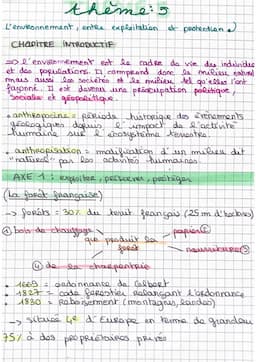 thème : 5
L'environnement, entre exploitation et protection.
CHAPITRE INTRODUCTIF
=> l'environnement est le cadre de vie des individus
et des populations. Il comprend donc le milieu naturel
mais aussi les sociétés et le milieu tel qu'elles l'ont
façonné. Il est devenu une préoccupation politique,
sociale et géopolitique.
• anthropocène : période historique des évènements
géologiques depuis l'impact de l'activité
humaine sur l'écosystème terrestre.
• anthropisation : modification d'un milieu dit
"naturel" par les activités humaines.
AXE 1 : exploiter, préserver, protéger
(La forêt française)
-> forêts : 30% du territ français (25 m d'hectares)
① bois de chauffage
papier ②
que produit la forêt
nourriture ③
④ de la charpenterie
• 1669 = ordonnance de Colbert
• 1827 = code forestier relançant l'ordonnance
• 1830 = reboisement (montagnes, landes)
-> située 4e d'Europe en terme de grandeur
75% à des propriétaires privés